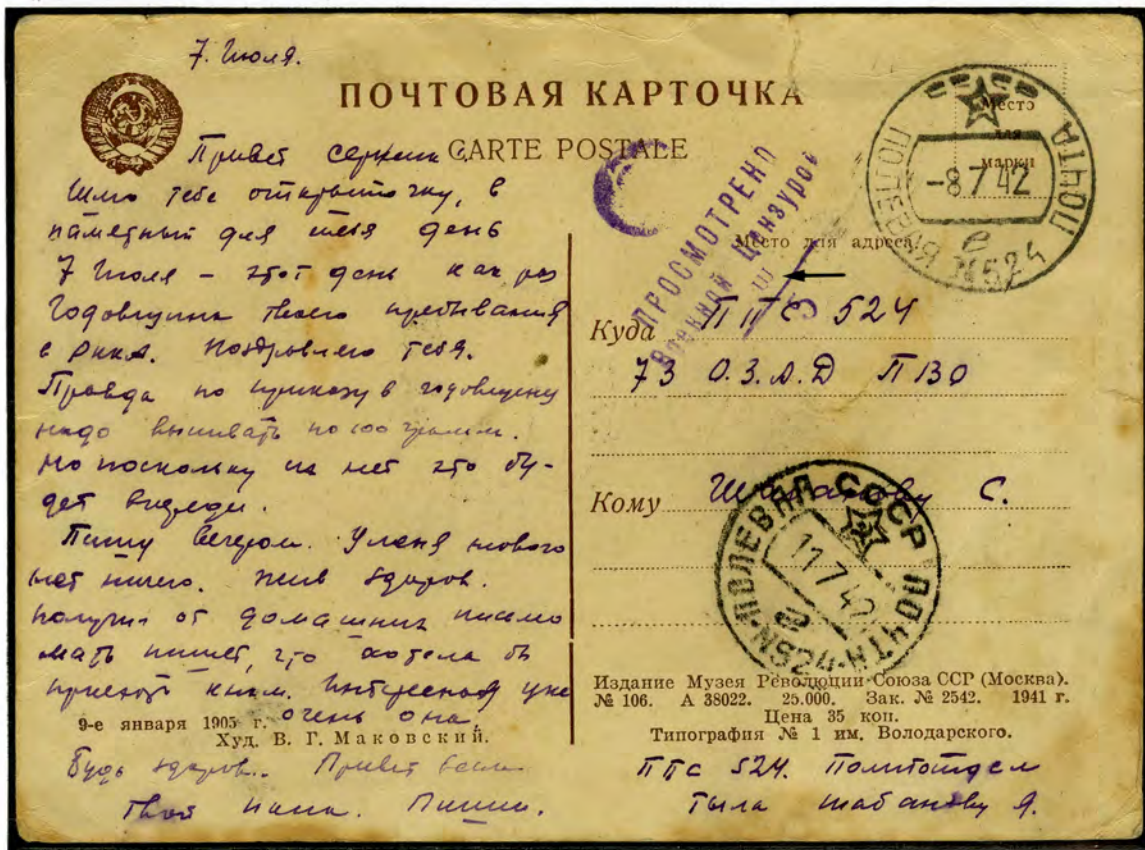 7. Июля.
ПОЧТОВАЯ КАРТОЧКА
CARTE POSTALE
Привет
Шлю тебе открыточку, в
памятный для тебя день
7 Июля – этот день как раз
Годовщина твоего пребывания
в РККА. Поздравляю тебя.
Правда по приказу в годовщину
надо выпивать по 100 грамм.
Но поскольку их нет это бу-
дет впереди.
Пишу вечером. У меня нового
нет ничего. Жив здоров.
получил от домашних письмо
мать пишет, что хотела бы
приехать к нам.
очень она.
9-е января 1905 г.
Худ. В. Г. Маковский.
Будь здоров. Привет
Твой папа. Пиши.
Место
для
марки
ПОЛЕВАЯ ПОЧТА
-8 7 42
е
N524
ПРОСМОТРЕНО
Военной Цензурой
Место для адреса
Куда ППС 524
73 О.З.А.Д ПВО
Кому Шабанову С.
СССР
ПОЛЕВАЯ ПОЧТА
11 7 42
N524
Издание Музея Революции Союза ССР (Москва).
№ 106. А 38022. 25.000. Зак. № 2542. 1941 г.
Цена 35 коп.
Типография № 1 им. Володарского.
ППС 524. Политотдел
Тыла Шабанову Я.